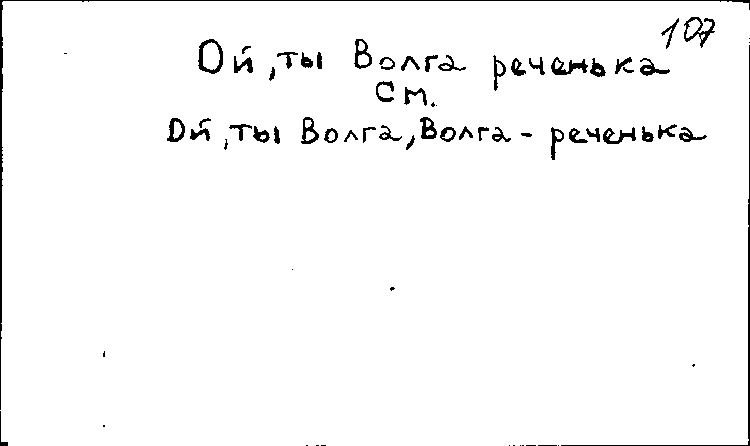 107
Ой, ты Волга реченька
См.
Ой, ты Волга, Волга - реченька